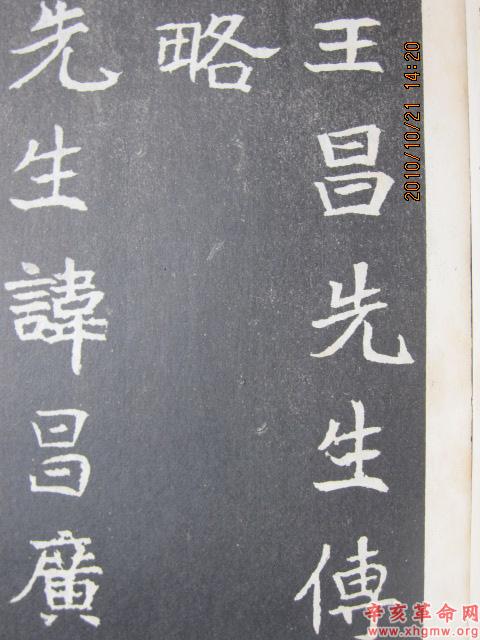 王昌先生傳
略
先生諱昌廣
2010/10/21 14:20
辛亥革命网
www.xhgmw.org